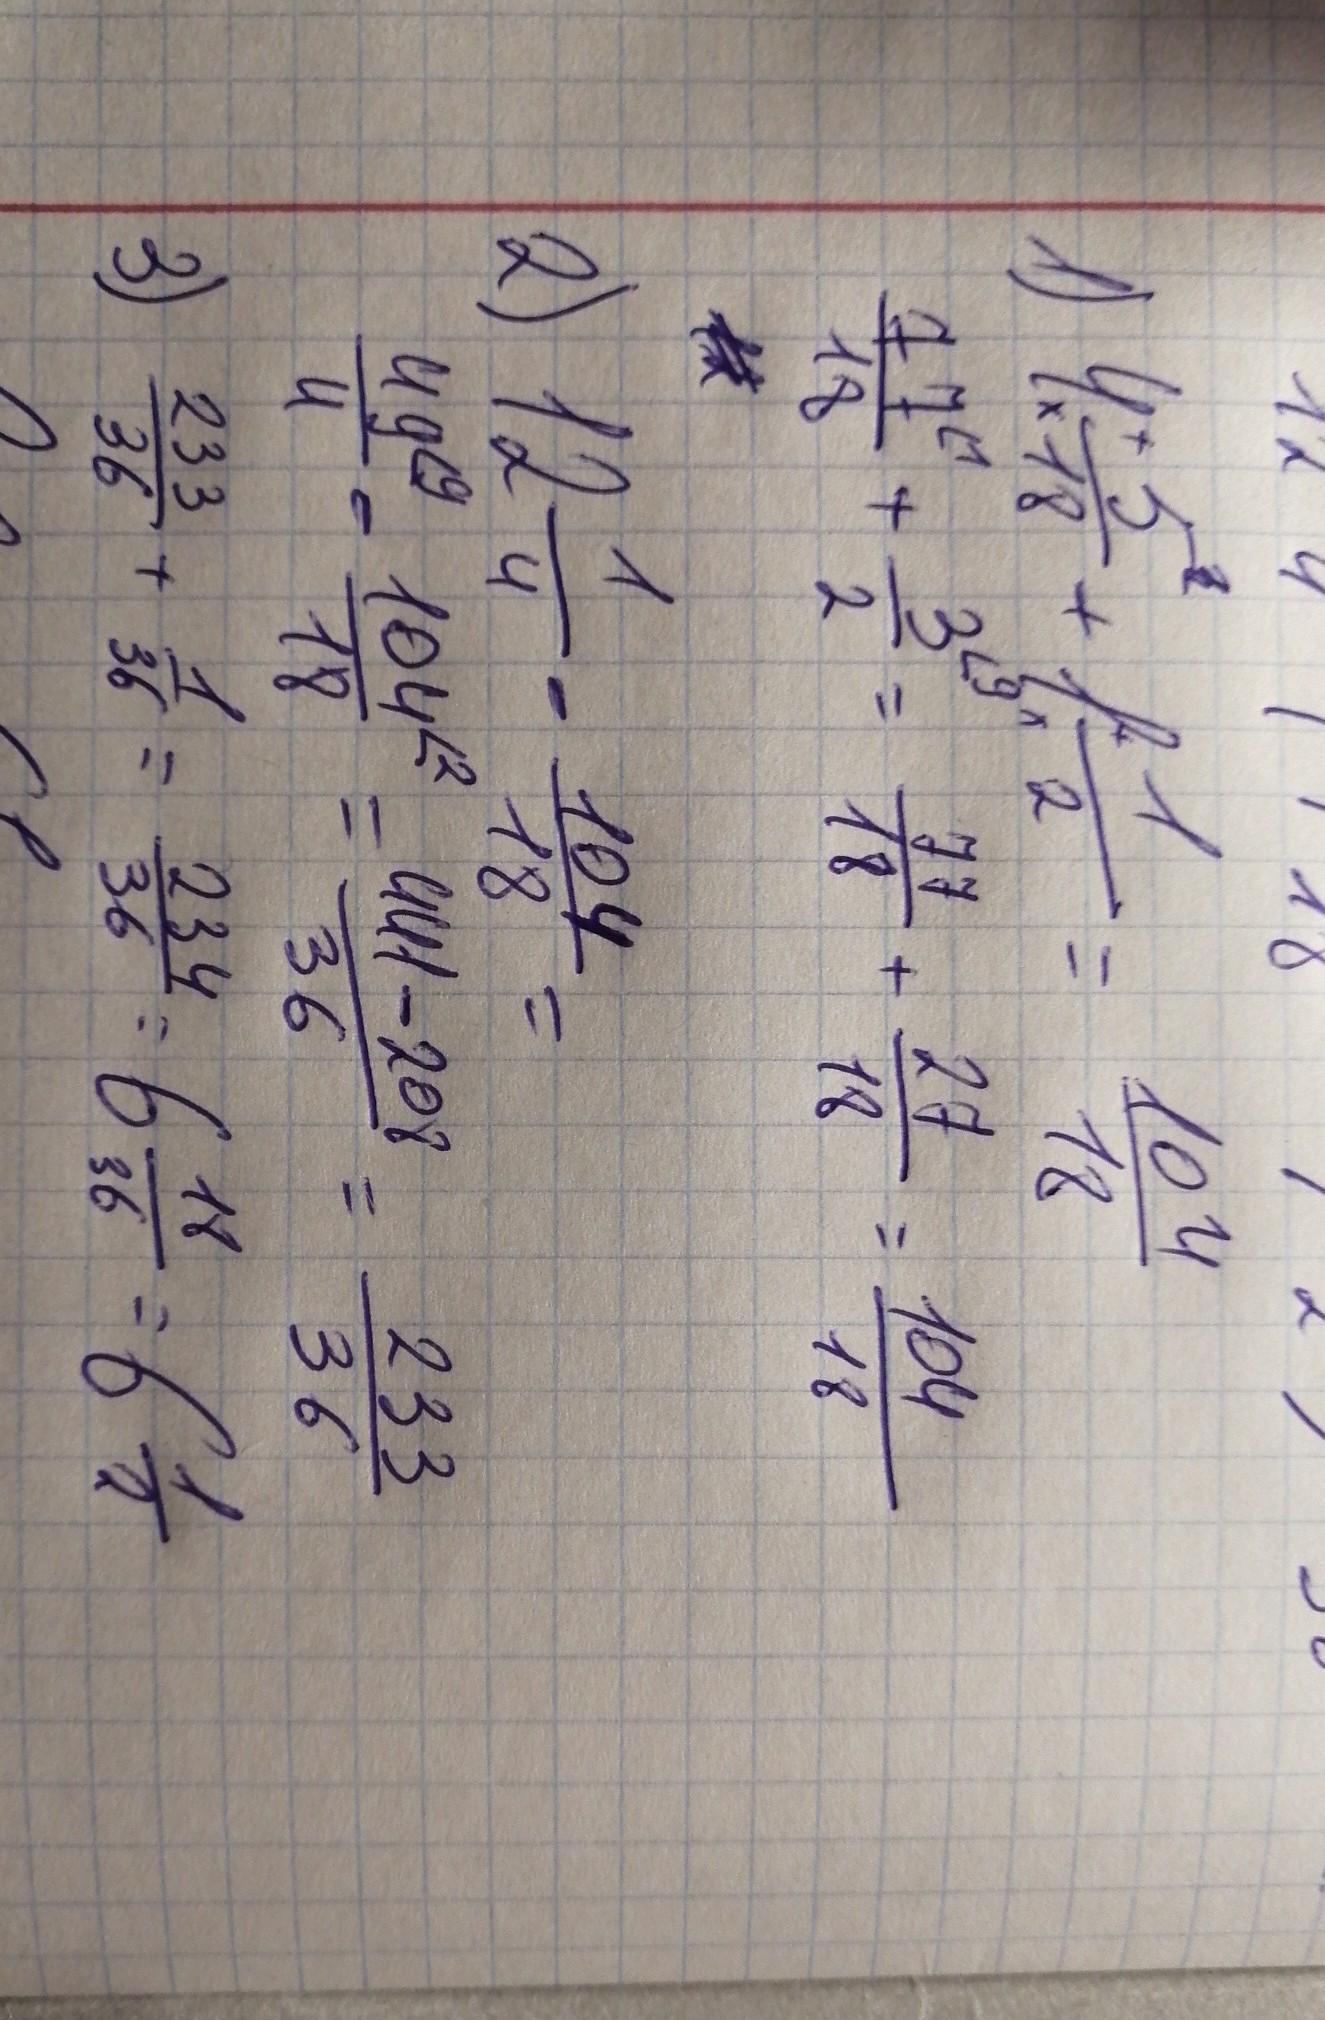 12 4 18 2
1) 4 5/18 + 1 1/2 = 104/18
77/18 + 3/2 = 77/18 + 27/18 = 104/18
2) 12 1/4 - 104/18 =
49/4 - 104/18 = 441-208/36 = 233/36
3) 233/36 + 1/36 = 234/36 = 6 18/36 = 6 1/2